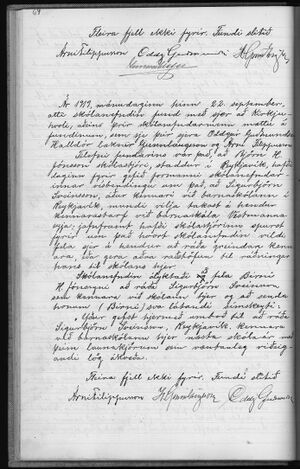 64
Fleira fjell ekki fyrir. Fundi slitið
Árni Filippusson Oddg. Guðmundsson H. Gunnlaugsson
Ár 1919, mánudaginn hinn 22. september,
átti skólanefndin fund með sjer að Kirkju-
hvoli, eður þrír skólanefndarmenn mættu á
fundinum, sem sje þeir sjera Oddgeir Guðmundsson
Halldór læknir Gunnlaugsson og Árni Filippusson
Tilefni fundarins var það, að Björn H.
Jónsson skólastjóri, staddur í Reykjavík, hafði
daginn fyrir gefið formanni skólanefndar-
innar vísbendingu um það, að Sigurbjörn
Sveinsson, áður kennari við barnaskólann í
Reykjavík, mundi vilja takast á hendur
kennarastarf við barnaskóla Vestmanna-
eyja, jafnframt hafði skólastjórinn spurst
fyrir um það hvort skólanefndin vildi
fela sjer á hendur að ráða greindan kenn-
ara, eða gera aðra ráðstöfun til ráðningar
hans til skólans hjer.
Skólanefndin ályktaði að fela Birni
H. Jónssyni að ráða Sigurbjörn Sveinsson
sem kennara við skólann hjer og að senda
honum (Birni) þar að lútandi símskeyti.
Sigurbjörn Sveinsson, Reykjavík, kennara
við barnaskólann hjer næsta skólaár með
þeim launakjörum sem væntanleg verða
andi lög ákveða.
Fleira fjell ekki fyrir. Fundi slitið
Árni Filippusson H. Gunnlaugsson Oddg. Guðmundsson